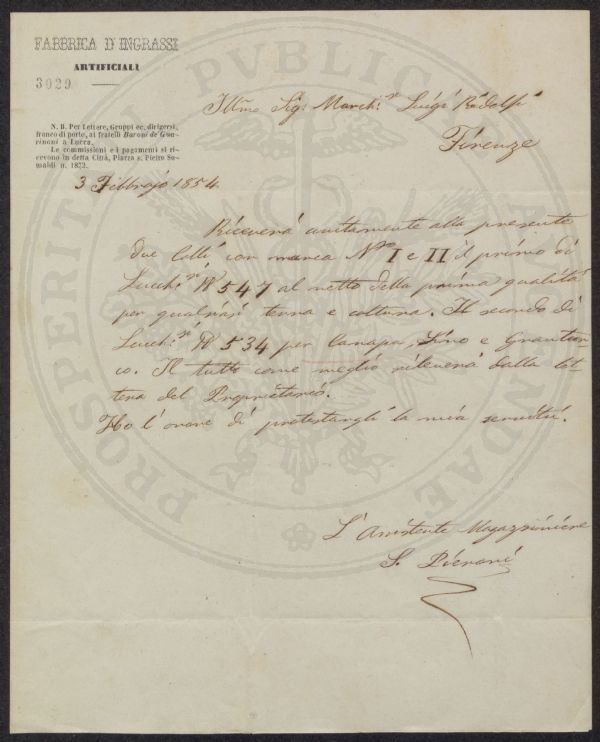 FABBRICA D'INGRASSI
ARTIFICIALI
3029
N. B. Per Lettere, Gruppi ec. dirigersi,
franco di porto, ai fratelli Baroni de Gua-
rinoni a Lucca.
Le commissioni e i pagamenti si ri-
cevono in detta Città, Piazza s. Pietro So-
maldi n. 1872.
3 Febbrajo 1854.
Illmo Sig: March:se Luigi Ridolfi
Firenze
Riceverà unitamente alla presente
due Colli con marca Nro I e II il primo di
Lucch:si ℔ 547 al netto della prima qualità
per qualsiasi terra e coltura. Il secondo di
Lucch:si ℔ 534 per Canapa, Lino e Grantur-
co. Il tutto come meglio rileverà dalla let-
tera del Proprietario.
Ho l'onore di protestargli la mia servitù.
L'Assistente Magazziniere
S. Pierani
PROSPERITATI PUBLICAE AUGENDAE